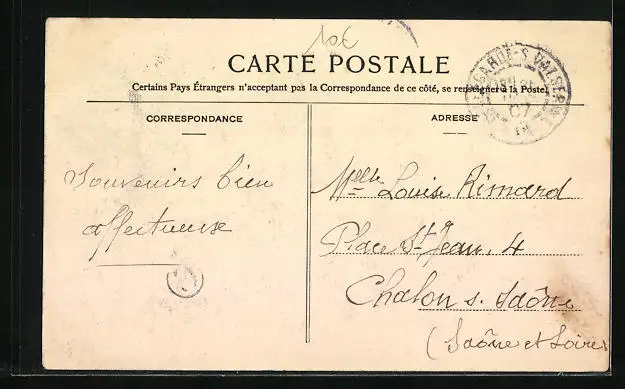 10€
CARTE POSTALE
Certains Pays Étrangers n'acceptant pas la Correspondance de ce côté, se renseigner à la Poste.
CORRESPONDANCE
ADRESSE
Souvenirs bien
affectueuse
Melle Louise Rimard
Place St Jean, 4
Chalon s. Saône
(Saône et Loire)